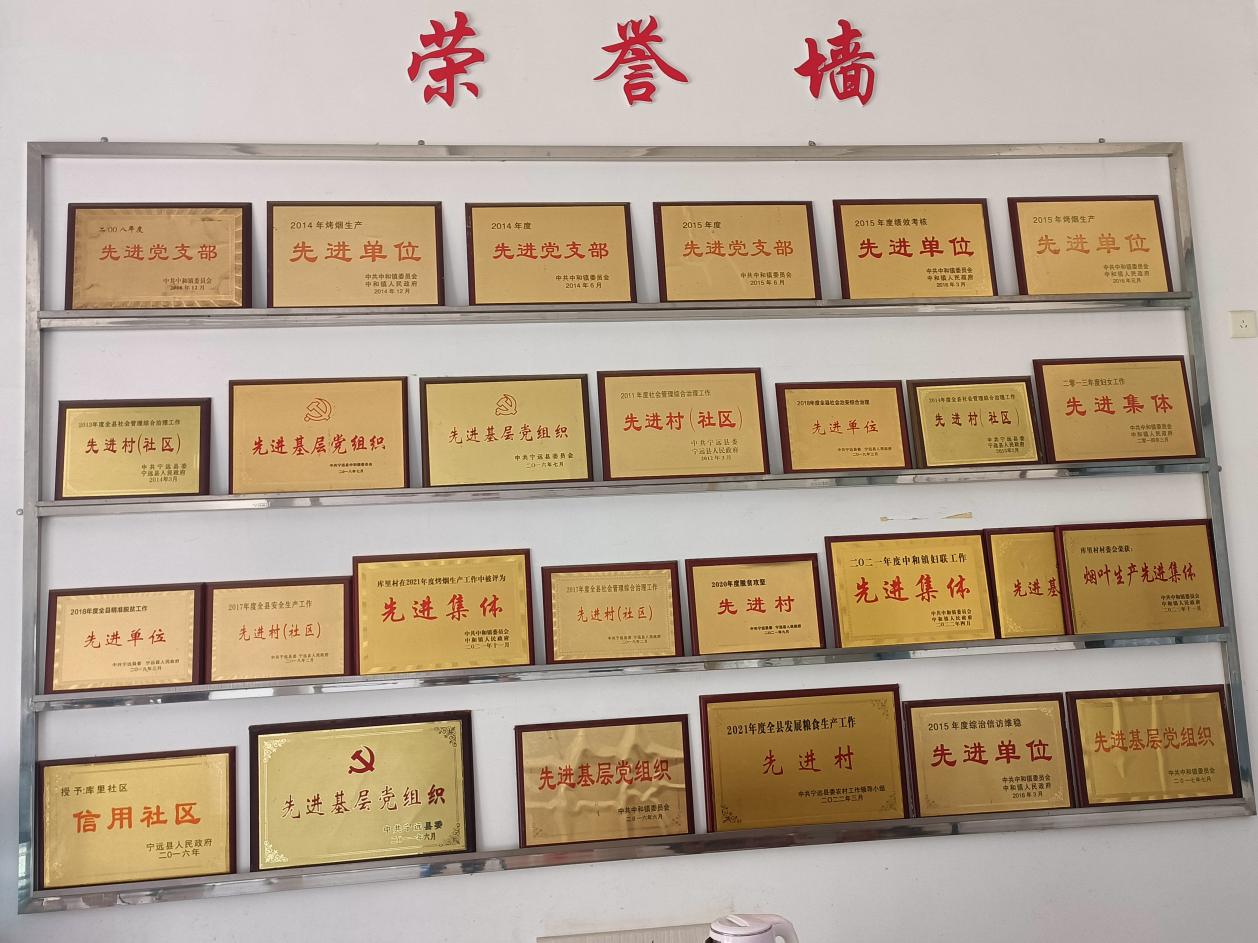 荣誉墙
二00八年度
先进党支部
中共中和镇委员会
2008年12月
2014年烤烟生产
先进单位
中共中和镇委员会
中和镇人民政府
2014年12月
2014年度
先进党支部
中共中和镇委员会
2014年6月
2015年度
先进党支部
中共中和镇委员会
2015年6月
2015年度绩效考核
先进单位
中共中和镇委员会
中和镇人民政府
2016年3月
2015年烤烟生产
先进单位
中共中和镇委员会
中和镇人民政府
2016年元月
2013年度全县社会管理综合治理工作
先进村(社区)
中共宁远县委
宁远县人民政府
2014年3月
先进基层党组织
中共宁远县中和镇委员会
二〇一八年七月
先进基层党组织
中共宁远县委员会
二〇一六年七月
2011年度社会管理综合治理工作
先进村(社区)
中共宁远县委
宁远县人民政府
2012年3月
2018年度全县社会治安综合治理
先进单位
中共宁远县委 宁远县人民政府
二〇一九年三月
2014年度全县社会管理综合治理工作
先进村(社区)
中共宁远县委
宁远县人民政府
2015年2月
二零一三年度妇女工作
先进集体
中共中和镇委员会
中和镇人民政府
二零一四年三月
2018年度全县精准脱贫工作
先进单位
中共宁远县委 宁远县人民政府
二〇一九年三月
2017年度全县安全生产工作
先进村(社区)
中共宁远县委 宁远县人民政府
二〇一八年二月
库里村在2021年度烤烟生产工作中被评为
先进集体
中共中和镇委员会
中和镇人民政府
二〇二一年十一月
2017年度全县社会管理综合治理工作
先进村(社区)
中共宁远县委 宁远县人民政府
二〇一八年二月
2020年度脱贫攻坚
先进村
中共宁远县委 宁远县人民政府
二〇二一年九月
二〇二一年度中和镇妇联工作
先进集体
中共中和镇委员会
中和镇人民政府
二〇二二年四月
先进基
库里村村委会荣获:
烟叶生产先进集体
中共中和镇委员会
中和镇人民政府
二〇二二年十一月
授予:库里社区
信用社区
宁远县人民政府
二〇一六年
先进基层党组织
中共宁远县委
二〇一七年六月
先进基层党组织
中共中和镇委员会
二〇一六年六月
2021年度全县发展粮食生产工作
先进村
中共宁远县委农村工作领导小组
二〇二二年三月
2015年度综治信访维稳
先进单位
中共中和镇委员会
中和镇人民政府
2016年3月
先进基层党组织
中共中和镇委员会
二〇一七年七月